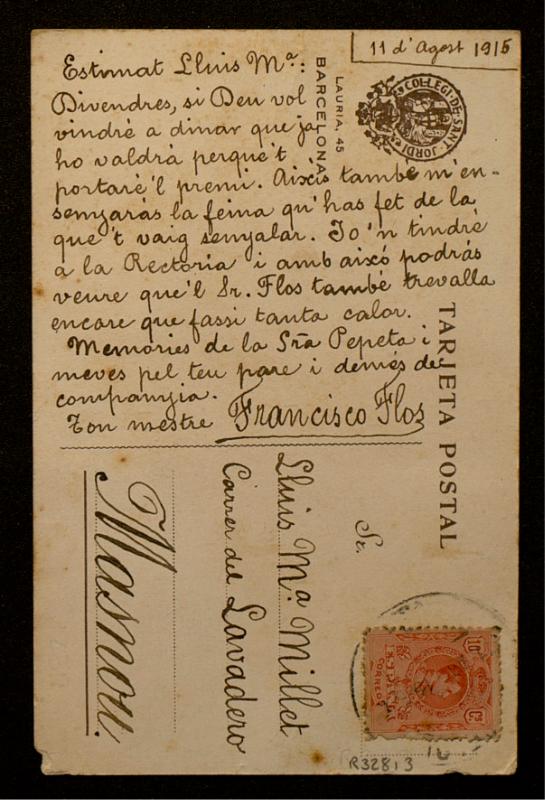 11 d'Agost 1915
COL·LEGI·DE·SANT·JORDI
LAURIA, 45
BARCELONA
Estimat Lluis Mª:
Divendres, si Deu vol
vindré a dinar que ja
ho valdrá perqué't
portaré'l premi. Aixís també m'en-
senyarás la feina qu'has fet de la
que't vaig senyalar. Jo'n tindré
a la Rectoría i amb aixó podrás
veure que'l Sr. Flos també trevalla
encare que fassi tanta calor.
Memories de la Sra Pepeta i
meves pel teu pare i demés de
companyia.
Ton mestre Francisco Flos
TARJETA POSTAL
Sr.
Lluis Mª Millet
Carrer del Lavadero
Masnou.
CORREOS
10
R328,3